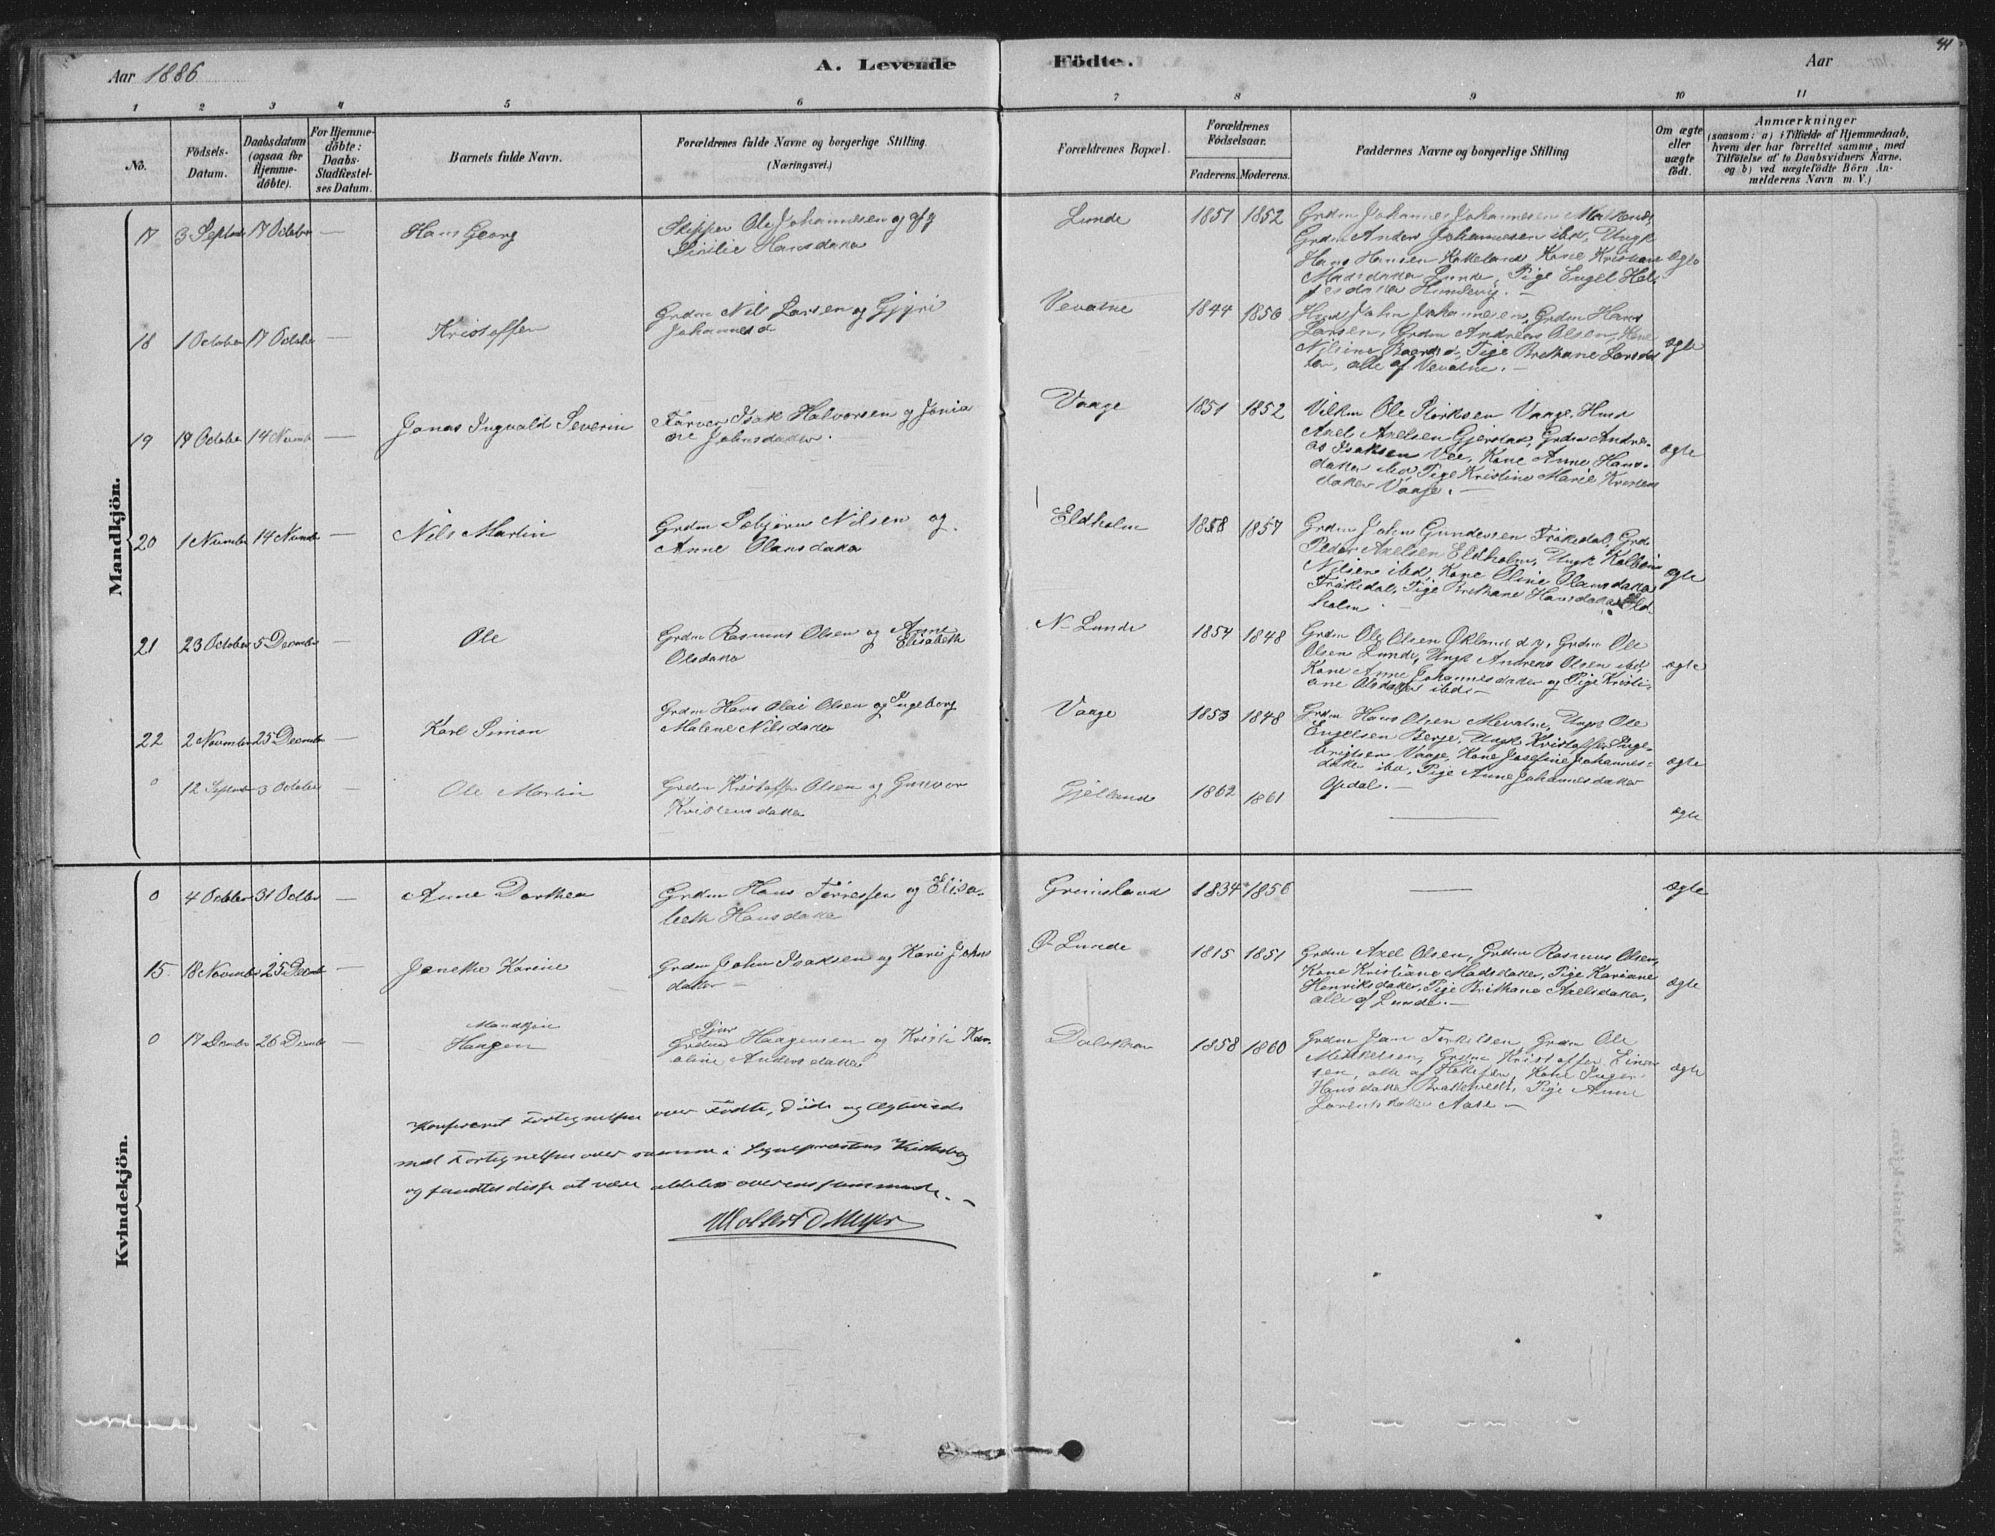 Aar 1886
A. Levende Födte.
Aar
44
1 2 3 4 5 6 7 8 9 10 11
No.
Födsels-Datum.
Daabsdatum (ogsaa for Hjemme-döbte).
For Hjemme-döbte: Daabs-Stadfæstel-ses Datum.
Barnets fulde Navn.
Forældrenes fulde Navne og borgerlige Stilling.
(Næringsvei.)
Forældrenes Bopæl.
Forældrenes Födselsaar.
Faderens. Moderens.
Faddernes Navne og borgerlige Stilling
Om ægte eller uægte födt.
Anmærkninger
(saasom: a) i Tilfælde af Hjemmedaab,
hvem der har forrettet samme, med
Tilföielse af to Daabsvidners Navne.
og b) ved uægtefödte Börn An-
melderens Navn m. V.)
Mandkjön.
17 3 Septbr 17 October — Hans Georg
Skipper Ole Johannesen og
Hansdatter
Lunde 1851 1852
Grdm Johannes Johannesen
Grdm Anders Johannesen ibd, Ungk
Hans Hansen Kone Kristiane
Madsdatter Lunde, Pige Engel
ægte
18 1 October 17 October — Kristoffer
Grdm Nils Larsen og
Johannesd
Vevatne 1844 1856
Husd John Johannesen, Grdm Hans
Larsen, Grdm Andreas Olsen, Kone
Nilsine Baardsd, Pige Brethane Larsdat
ter, alle af Vevatne. —
ægte
19 14 November — Jonas Ingvald Severin
Farver Isak Halvorsen og
Johnsdatter.
Vaage 1851 1852
Ole Vaage, Husd
Axel Axelsen Gjerstad, Grdm Andre-
as Isaksen Vee, Kone Anne Hans-
datter ibd, Pige Kristine Marie Kristens
datter Vaage. —
ægte
20 1 Novmbr 14 Novmbr — Nils Martin
Grdm Nilsen og
Anne Olansdatter
Eldholm 1858 1857
Grdm John Gundersen Frökedal, Grd
Peder Axelsen Eldholm, Ungk
Nilsen ibd, Kone Oline Olansdatter
Frökedal, Pige Brethane Hansdatter Eld
holm
ægte
21 23 October 5 December — Ole
Grdm Rasmus Olsen og Anne Elisabeth
Olsdatter
N. Lunde 1854 1848
Grdm Ole Olsen Økland d y, Grdm Ole
Olsen Lunde, Ungk Andreas Olsen ibd,
Kone Anne Johannesdatter og Pige Kristi-
ane Olsdatter ibd. —
ægte
22 2 November 25 December — Karl Simon
Grdm Hans Olai Olsen og Ingeborg
Malene Nilsdatter
Vaage 1853 1848
Grdm Hans Olsen Mevatne, Ungk Ole
Engelsen Berge, Ungk Kristoffer Inge-
brigtsen Vaage, Kone Josefine Johannes-
datter ibd, Pige Anne Johannesdatter
Opdal. —
ægte
0 12 Septmbr 3 October Ole Martin
Grdm Kristoffer Olsen og Gunvor
Kristensdatter
Gjelland 1862 1861
—
ægte
Kvindekjön.
0 4 October 31 Octbr — Anne Dorthea
Grdm Hans Tørressen og Elisa-
beth Hansdatter
Grimsland 1834 1856
—
ægte
15. 18 Novmbr 25 Decmbr — Janethe Karine
Grdm John Isaksen og Kari Johns
datter —
Ø Lunde 1815 1851
Grdm Axel Olsen, Grdm Rasmus Olsen,
Kone Kristiane Madsdatter, Pige Kariane
Henriksdatter, Pige Brethane Axelsdatter,
alle af Lunde. —
ægte
0 17 Decmbr 26 Decmbr — Mandkjön
Haagen
Sjur
Grdm Haagensen og Kristi Kar-
oline Andersdatter
1858 1860
Grdm Jan Torkilsen, Grdm Ole
Mikkelsen, Grdm Kristoffer Einar-
sen, alle af Kone Inger
Hansdatter Pige Anne
Lorentsdatter Aase —
ægte
Konfereret Fortegnelsen over Fødte, Døde og Ægteviede
med Fortegnelsen over samme i Sogneprestens Kirkebog
og fandtes disse at være aldeles overensstemmende. —
Wollert D Meyer